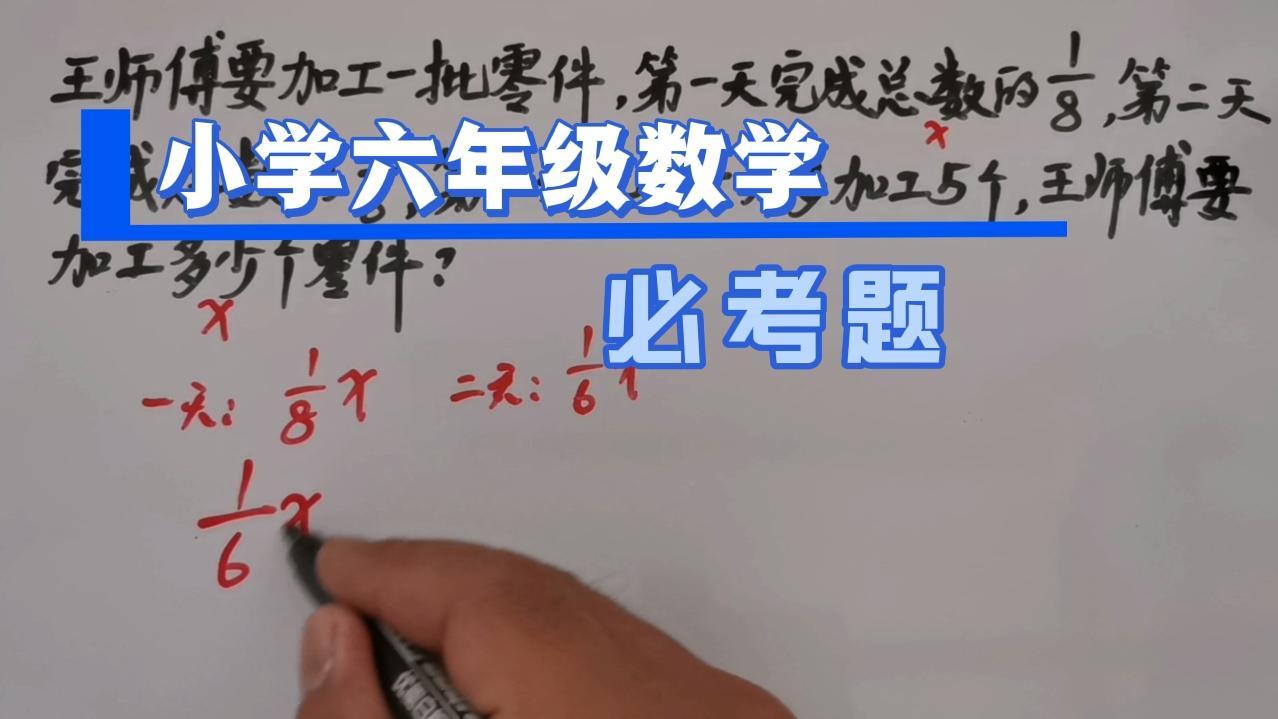 王师傅要加工一批零件,第一天完成总数的1/8,第二天
x
小学六年级数学
完成 多加工5个,王师傅要
加工多少个零件?
x
必考题
一天: 1/8x 二天: 1/6x
1/6x